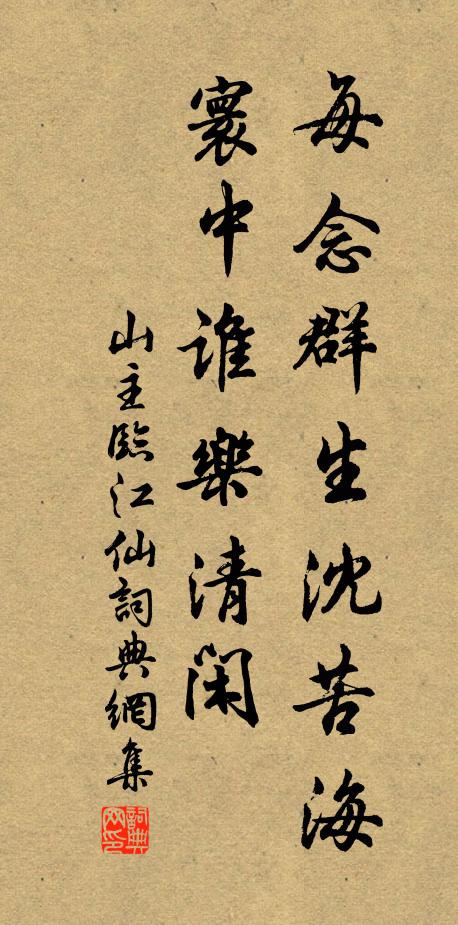 每念群生沈苦海
寰中誰樂清閑
山主臨江仙詞典網集
詞典网印